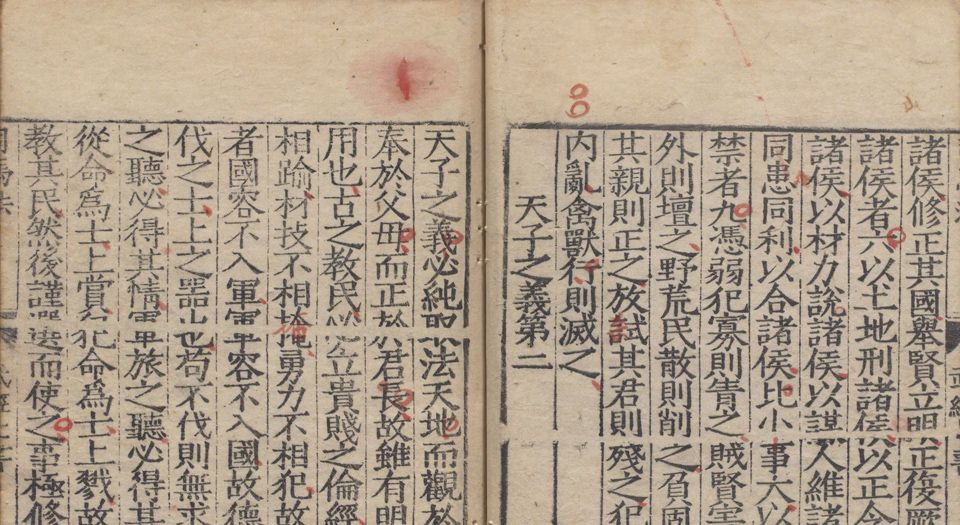 諸侯修正其國舉賢立明正復厥
諸侯者六以土地刑諸侯以正令
諸侯以材力說諸侯以謀人維諸
同患同利以合諸侯比小事大以
禁者九憑弱犯寡則眚之賊賢害
外則壇之野荒民散則削之負固
其親則正之放試其君則殘之犯
內亂禽獸行則滅之
天子之義第二
天子之義必純取法天地而觀於
奉於父母而正於君長故雖有明
用也古之教民必立貴賤之倫經
相踰材技不相掩勇力不相犯故
者國容不入軍軍容不入國故德
伐之士上之器也苟不伐則無求
之聽必得其情軍旅之聽必得其
從命爲士上賞犯命爲士上戮故
教其民然後謹選而使之事極修